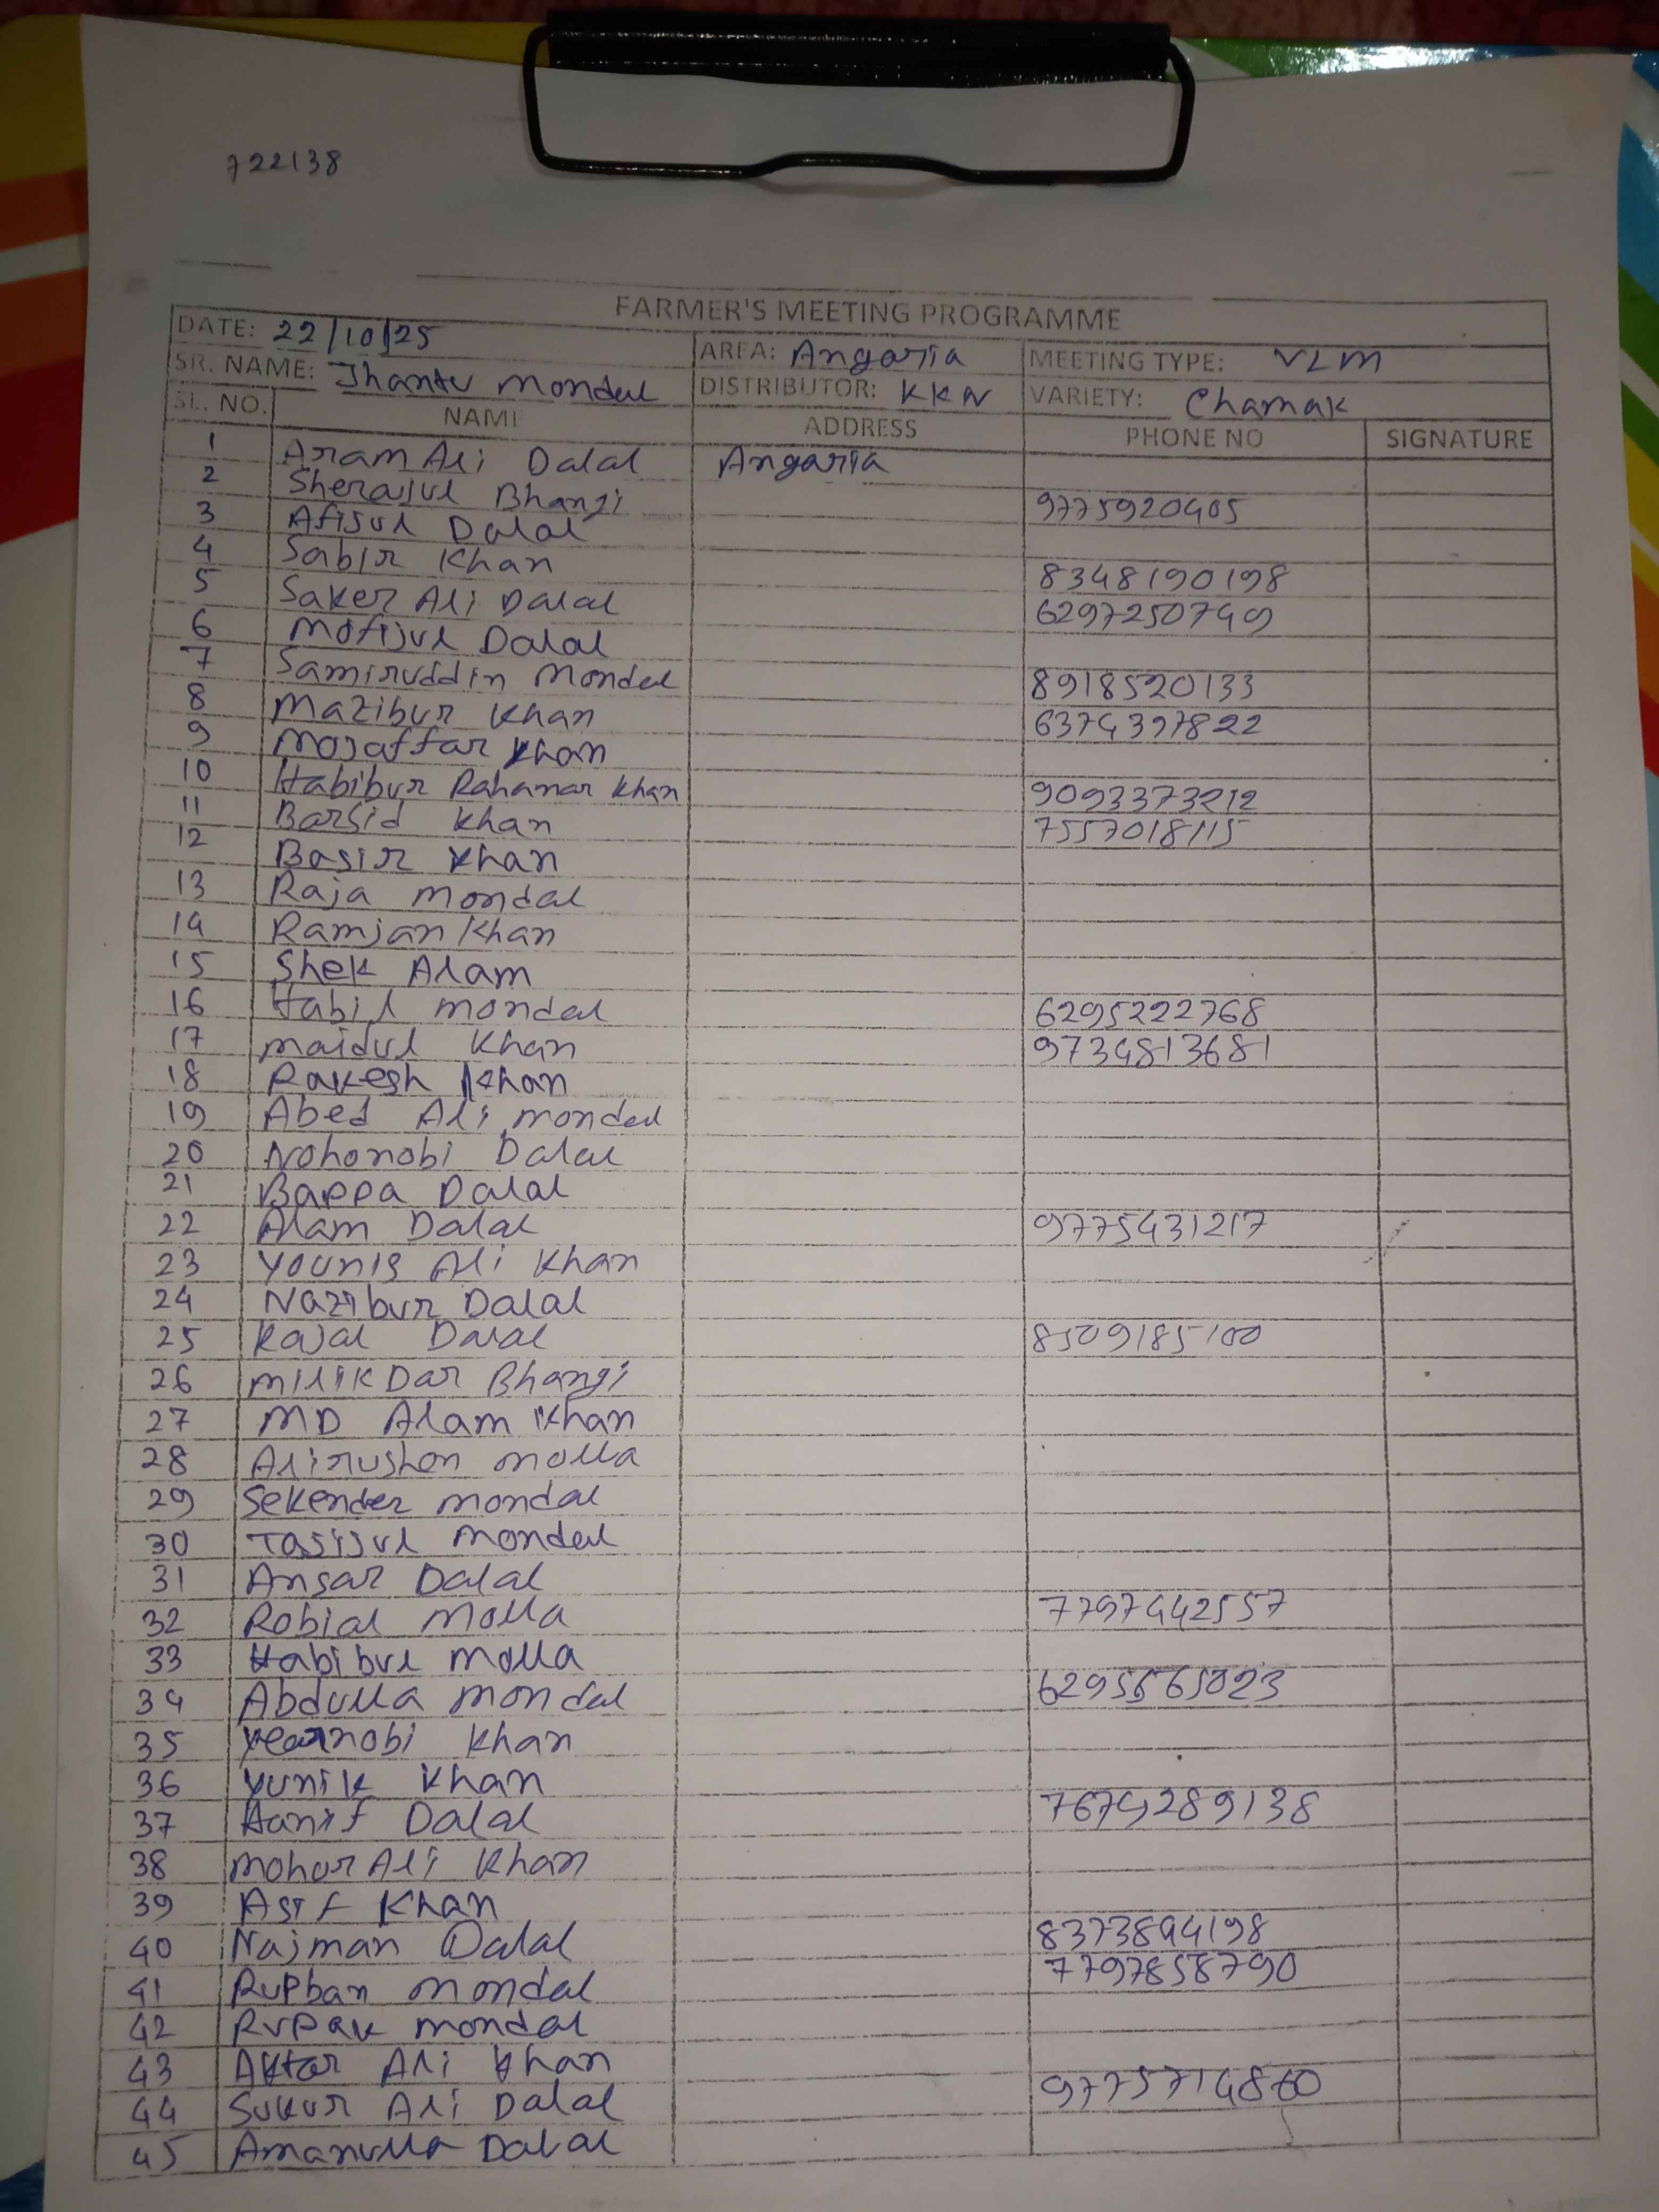 722138
FARMER'S MEETING PROGRAMME
DATE: 22/10/25 AREA: Angaria MEETING TYPE: VLM
SR. NAME: Jhantu Mondal DISTRIBUTOR: KKN VARIETY: Chamak
SL. NO. NAME ADDRESS PHONE NO SIGNATURE
1 Aram Ali Dalal Angaria
2 Sherajul Bhangi 9775920405
3 Afijul Dalal
4 Sabir Khan 8348190198
5 Saker Ali Dalal 6297250749
6 Mofijul Dalal
7 Samiruddin Mondal 8918520133
8 Mazibur Khan 6374397822
9 Mojaffar Khan
10 Habibur Rahaman Khan 9093373212
11 Barsid Khan 7557018115
12 Basir Khan
13 Raja Mondal
14 Ramjan Khan
15 Shek Alam
16 Habil Mondal 6295222768
17 Maidul Khan 9734813681
18 Rakesh Khan
19 Abed Ali Mondal
20 Nohonobi Dalal
21 Bappa Dalal
22 Alam Dalal 9775431217
23 Younis Ali Khan
24 Nazibur Dalal
25 Kajal Dalal 8509185100
26 Milik Dar Bhangi
27 MD Alam Khan
28 Alirushon Molla
29 Sekender Mondal
30 Tasijul Mondal
31 Ansar Dalal
32 Robial Molla 7797442557
33 Habibul Molla
34 Abdulla Mondal 6295565023
35 Yearnobi Khan
36 Yunik Khan
37 Hanif Dalal 7674289138
38 Mohor Ali Khan
39 Asif Khan
40 Najman Dalal 8373894198
41 Rupban Mondal 7797858790
42 Rupak Mondal
43 Aktar Ali Khan
44 Sukur Ali Dalal 9775714860
45 Amanulla Dalal